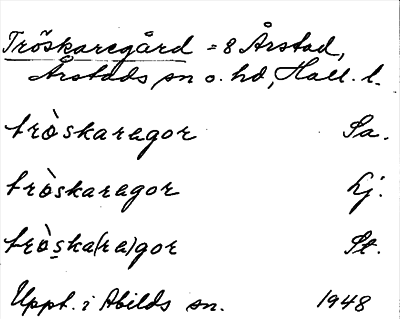 Tröskaregård = 8 Årstad,
Årstads sn o. hd, Hall. l.
trò̀skaragor Sa.
trò̀skaragor Lj.
trò̀ska(ra)gor St.
Uppt. i Abilds sn. 1948